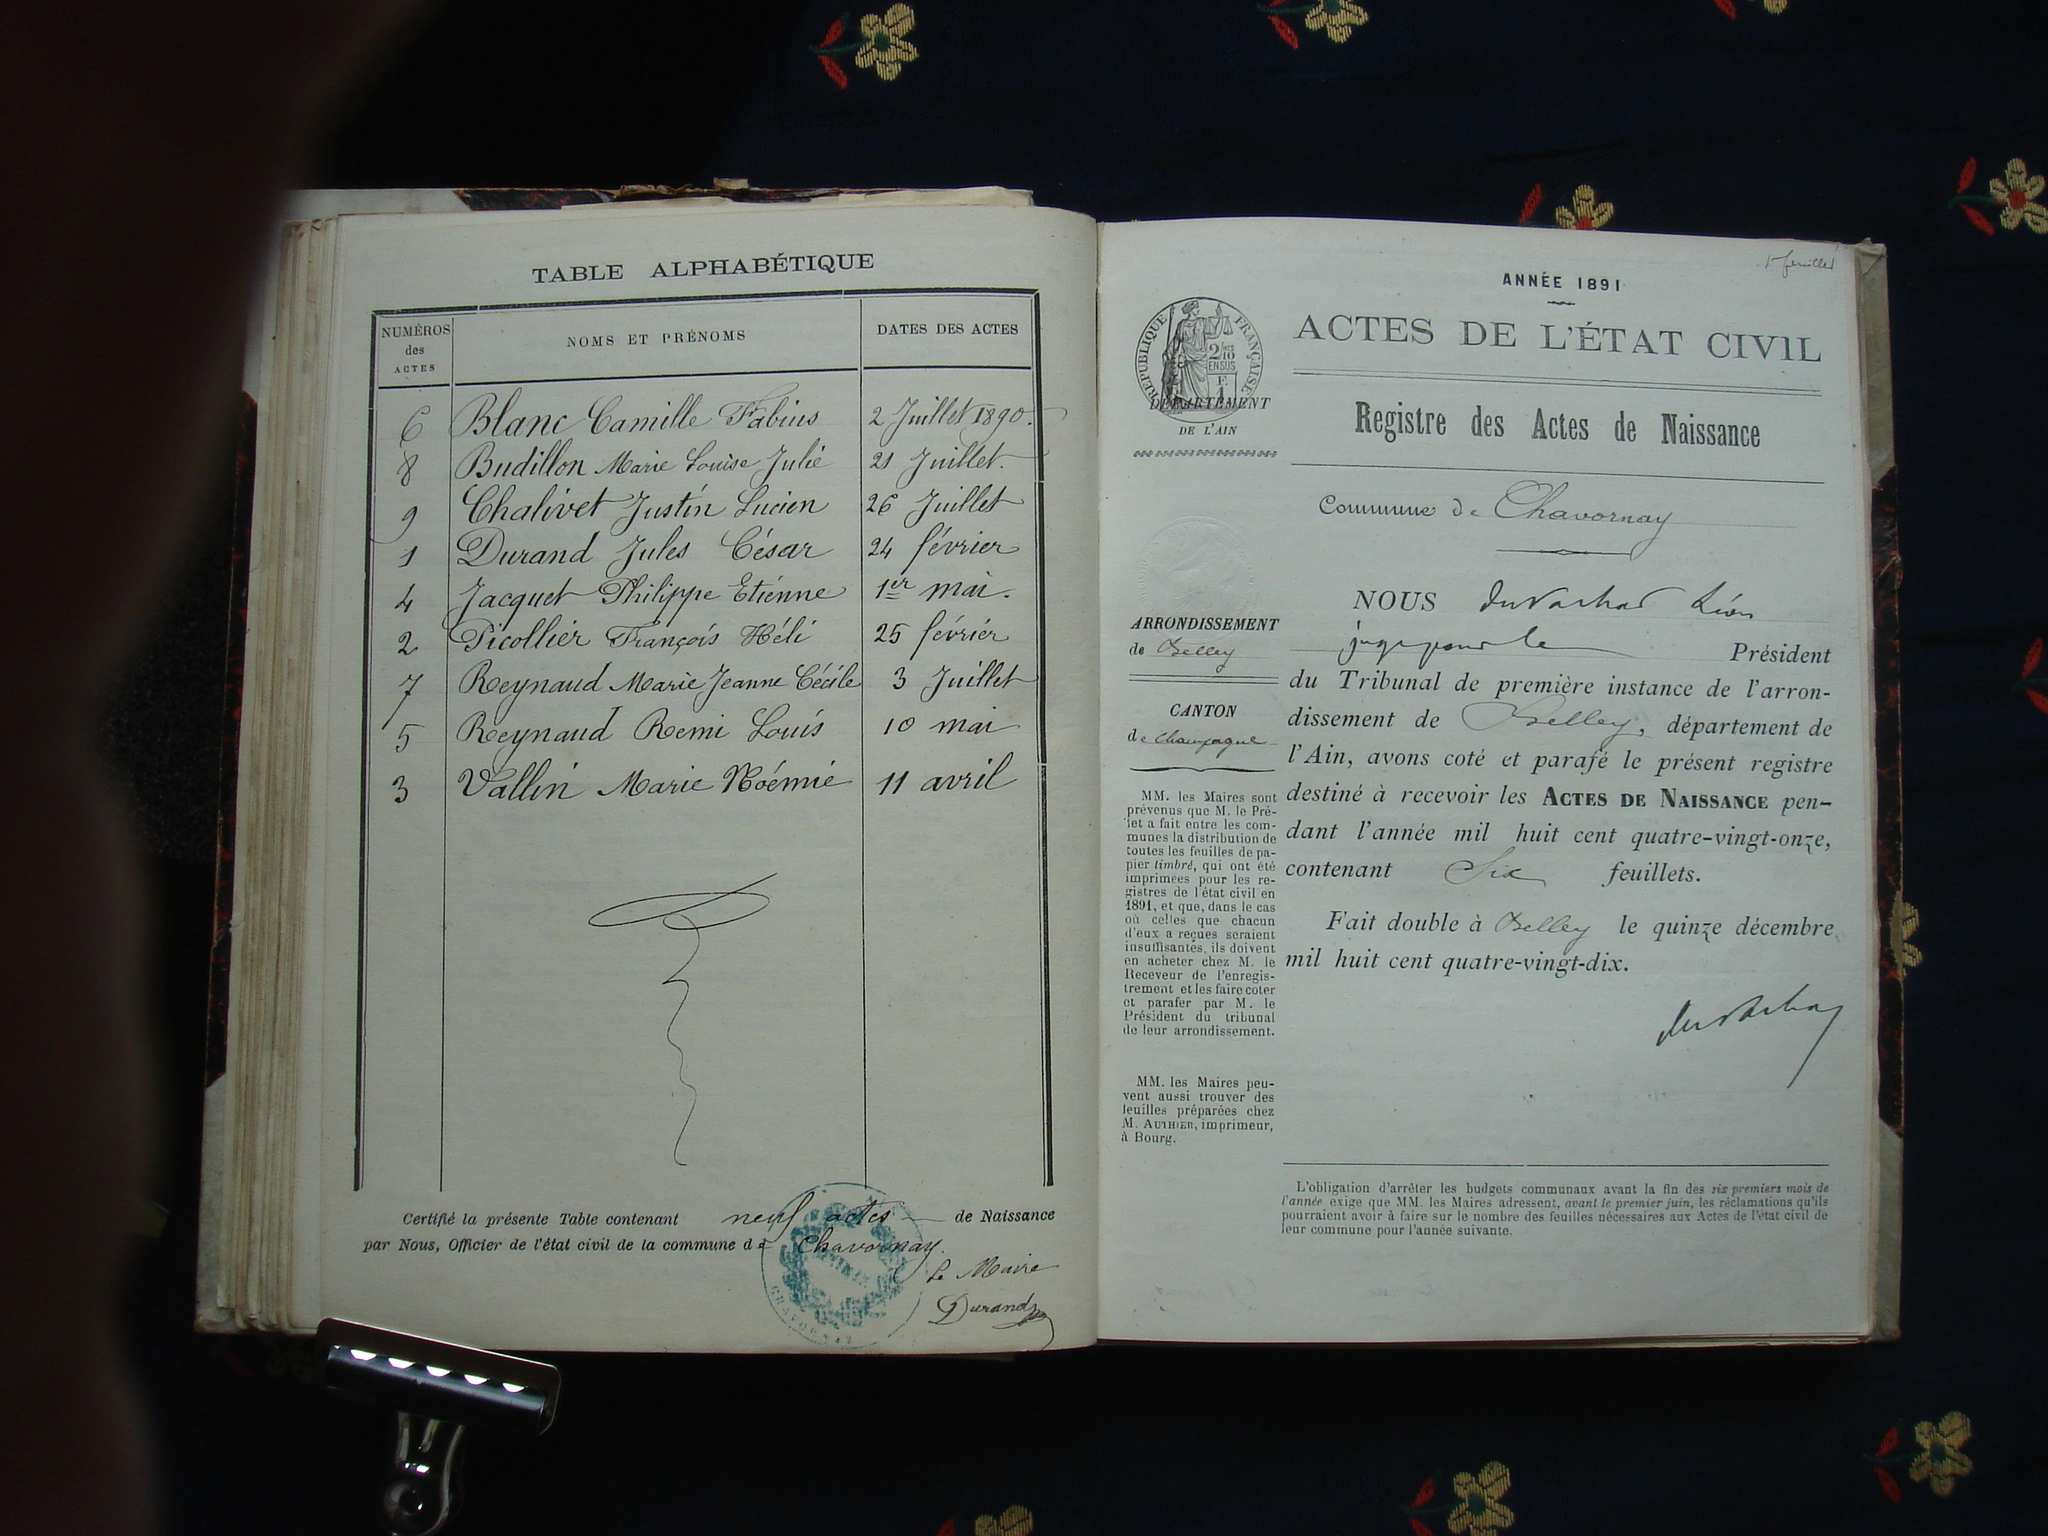 TABLE ALPHABÉTIQUE
NUMÉROS des ACTES NOMS ET PRÉNOMS DATES DES ACTES
6 Blanc Camille Fabius 2 Juillet 1890.
8 Budillon Marie Louise Julie 21 Juillet.
9 Chalivet Justin Lucien 26 Juillet
1 Durand Jules César 24 février
4 Jacquet Philippe Etienne 1er mai.
2 Picollier François Héli 25 février
7 Reynaud Marie Jeanne Cécile 3 Juillet
5 Reynaud Remi Louis 10 mai
3 Vallin Marie Noémie 11 avril
Certifié la présente Table contenant neuf actes de Naissance
par Nous, Officier de l'état civil de la commune de Chavornay.
Le Maire
Durand
CHAVORNAY
1er feuillet
ANNÉE 1891
ACTES DE L'ÉTAT CIVIL
Registre des Actes de Naissance
Commune de Chavornay
RÉPUBLIQUE FRANÇAISE
2/10
EN SUS
DÉPARTEMENT
DE L'AIN
ARRONDISSEMENT
de Belley
CANTON
de Champagne
MM. les Maires sont
prévenus que M. le Pré-
fet a fait entre les com-
munes la distribution de
toutes les feuilles de pa-
pier timbré, qui ont été
imprimées pour les re-
gistres de l'état civil en
1891, et que, dans le cas
où celles que chacun
d'eux a reçues seraient
insuffisantes, ils doivent
en acheter chez M. le
Receveur de l'enregis-
trement et les faire coter
et parafer par M. le
Président du tribunal
de leur arrondissement.
MM. les Maires peu-
vent aussi trouver des
feuilles préparées chez
M. AUTHIER, imprimeur,
à Bourg.
NOUS
juge pour le Président
du Tribunal de première instance de l'arron-
dissement de Belley, département de
l'Ain, avons coté et parafé le présent registre
destiné à recevoir les ACTES DE NAISSANCE pen-
dant l'année mil huit cent quatre-vingt-onze,
contenant Six feuillets.
Fait double à Belley le quinze décembre
mil huit cent quatre-vingt-dix.
L'obligation d'arrêter les budgets communaux avant la fin des six premiers mois de
l'année exige que MM. les Maires adressent, avant le premier juin, les réclamations qu'ils
pourraient avoir à faire sur le nombre des feuilles nécessaires aux Actes de l'état civil de
leur commune pour l'année suivante.